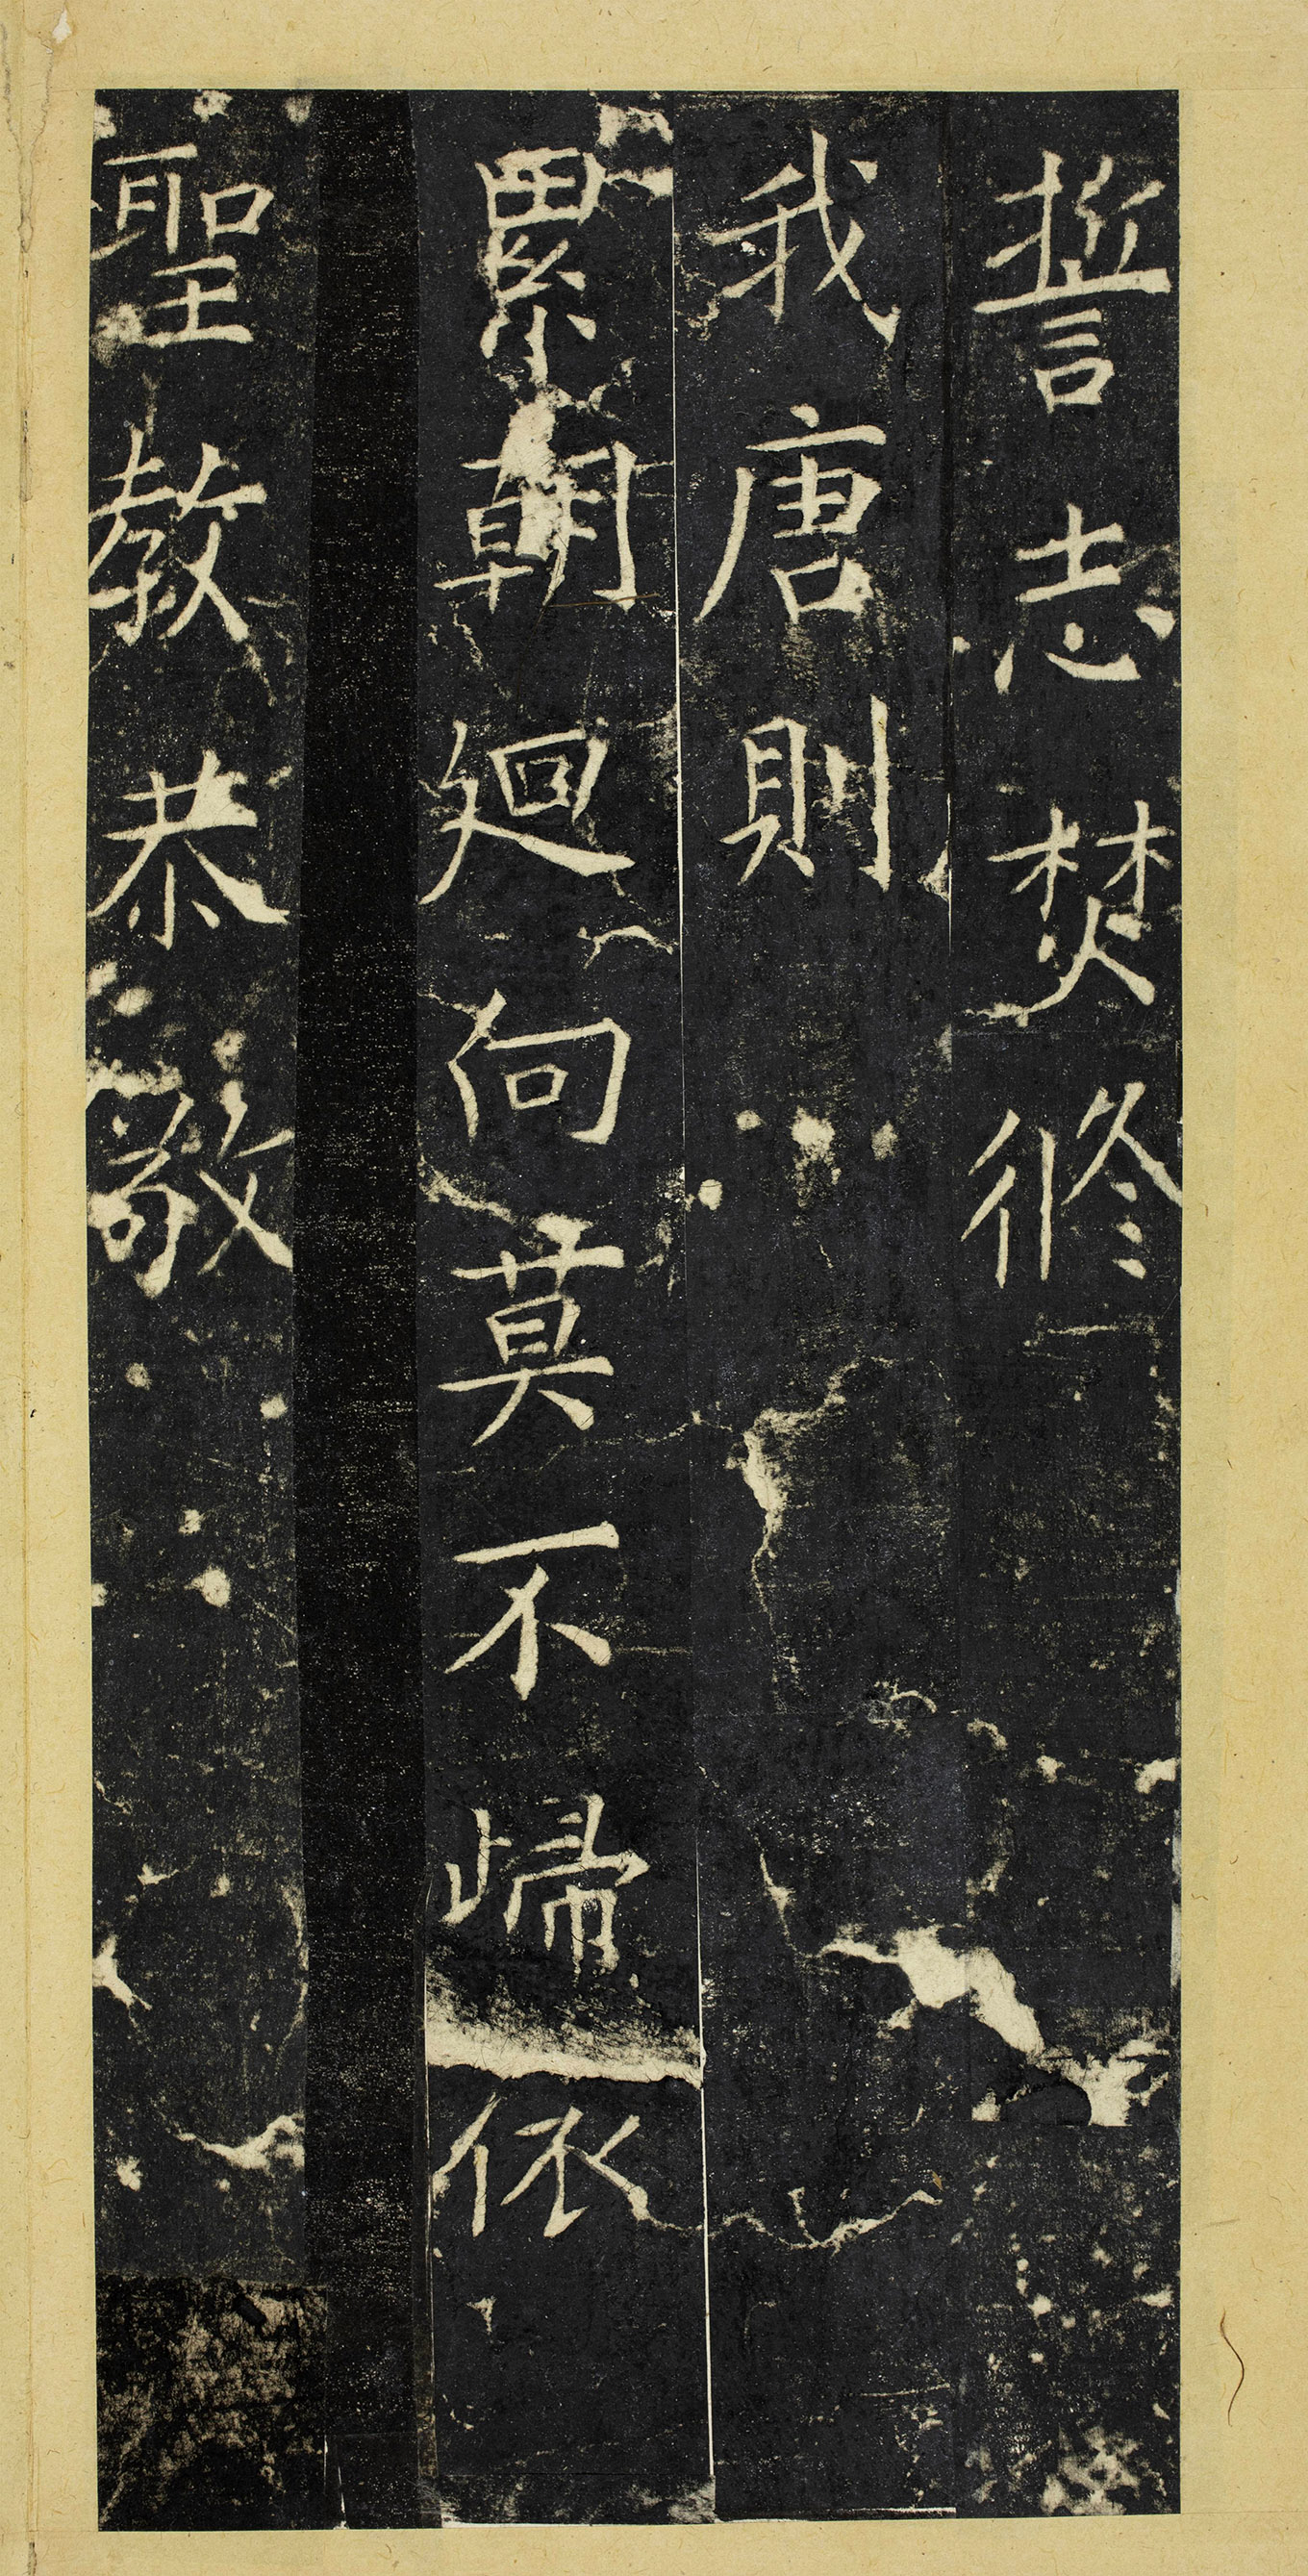 誓志焚修
我唐則
累朝迴向莫不歸依
聖教恭敬